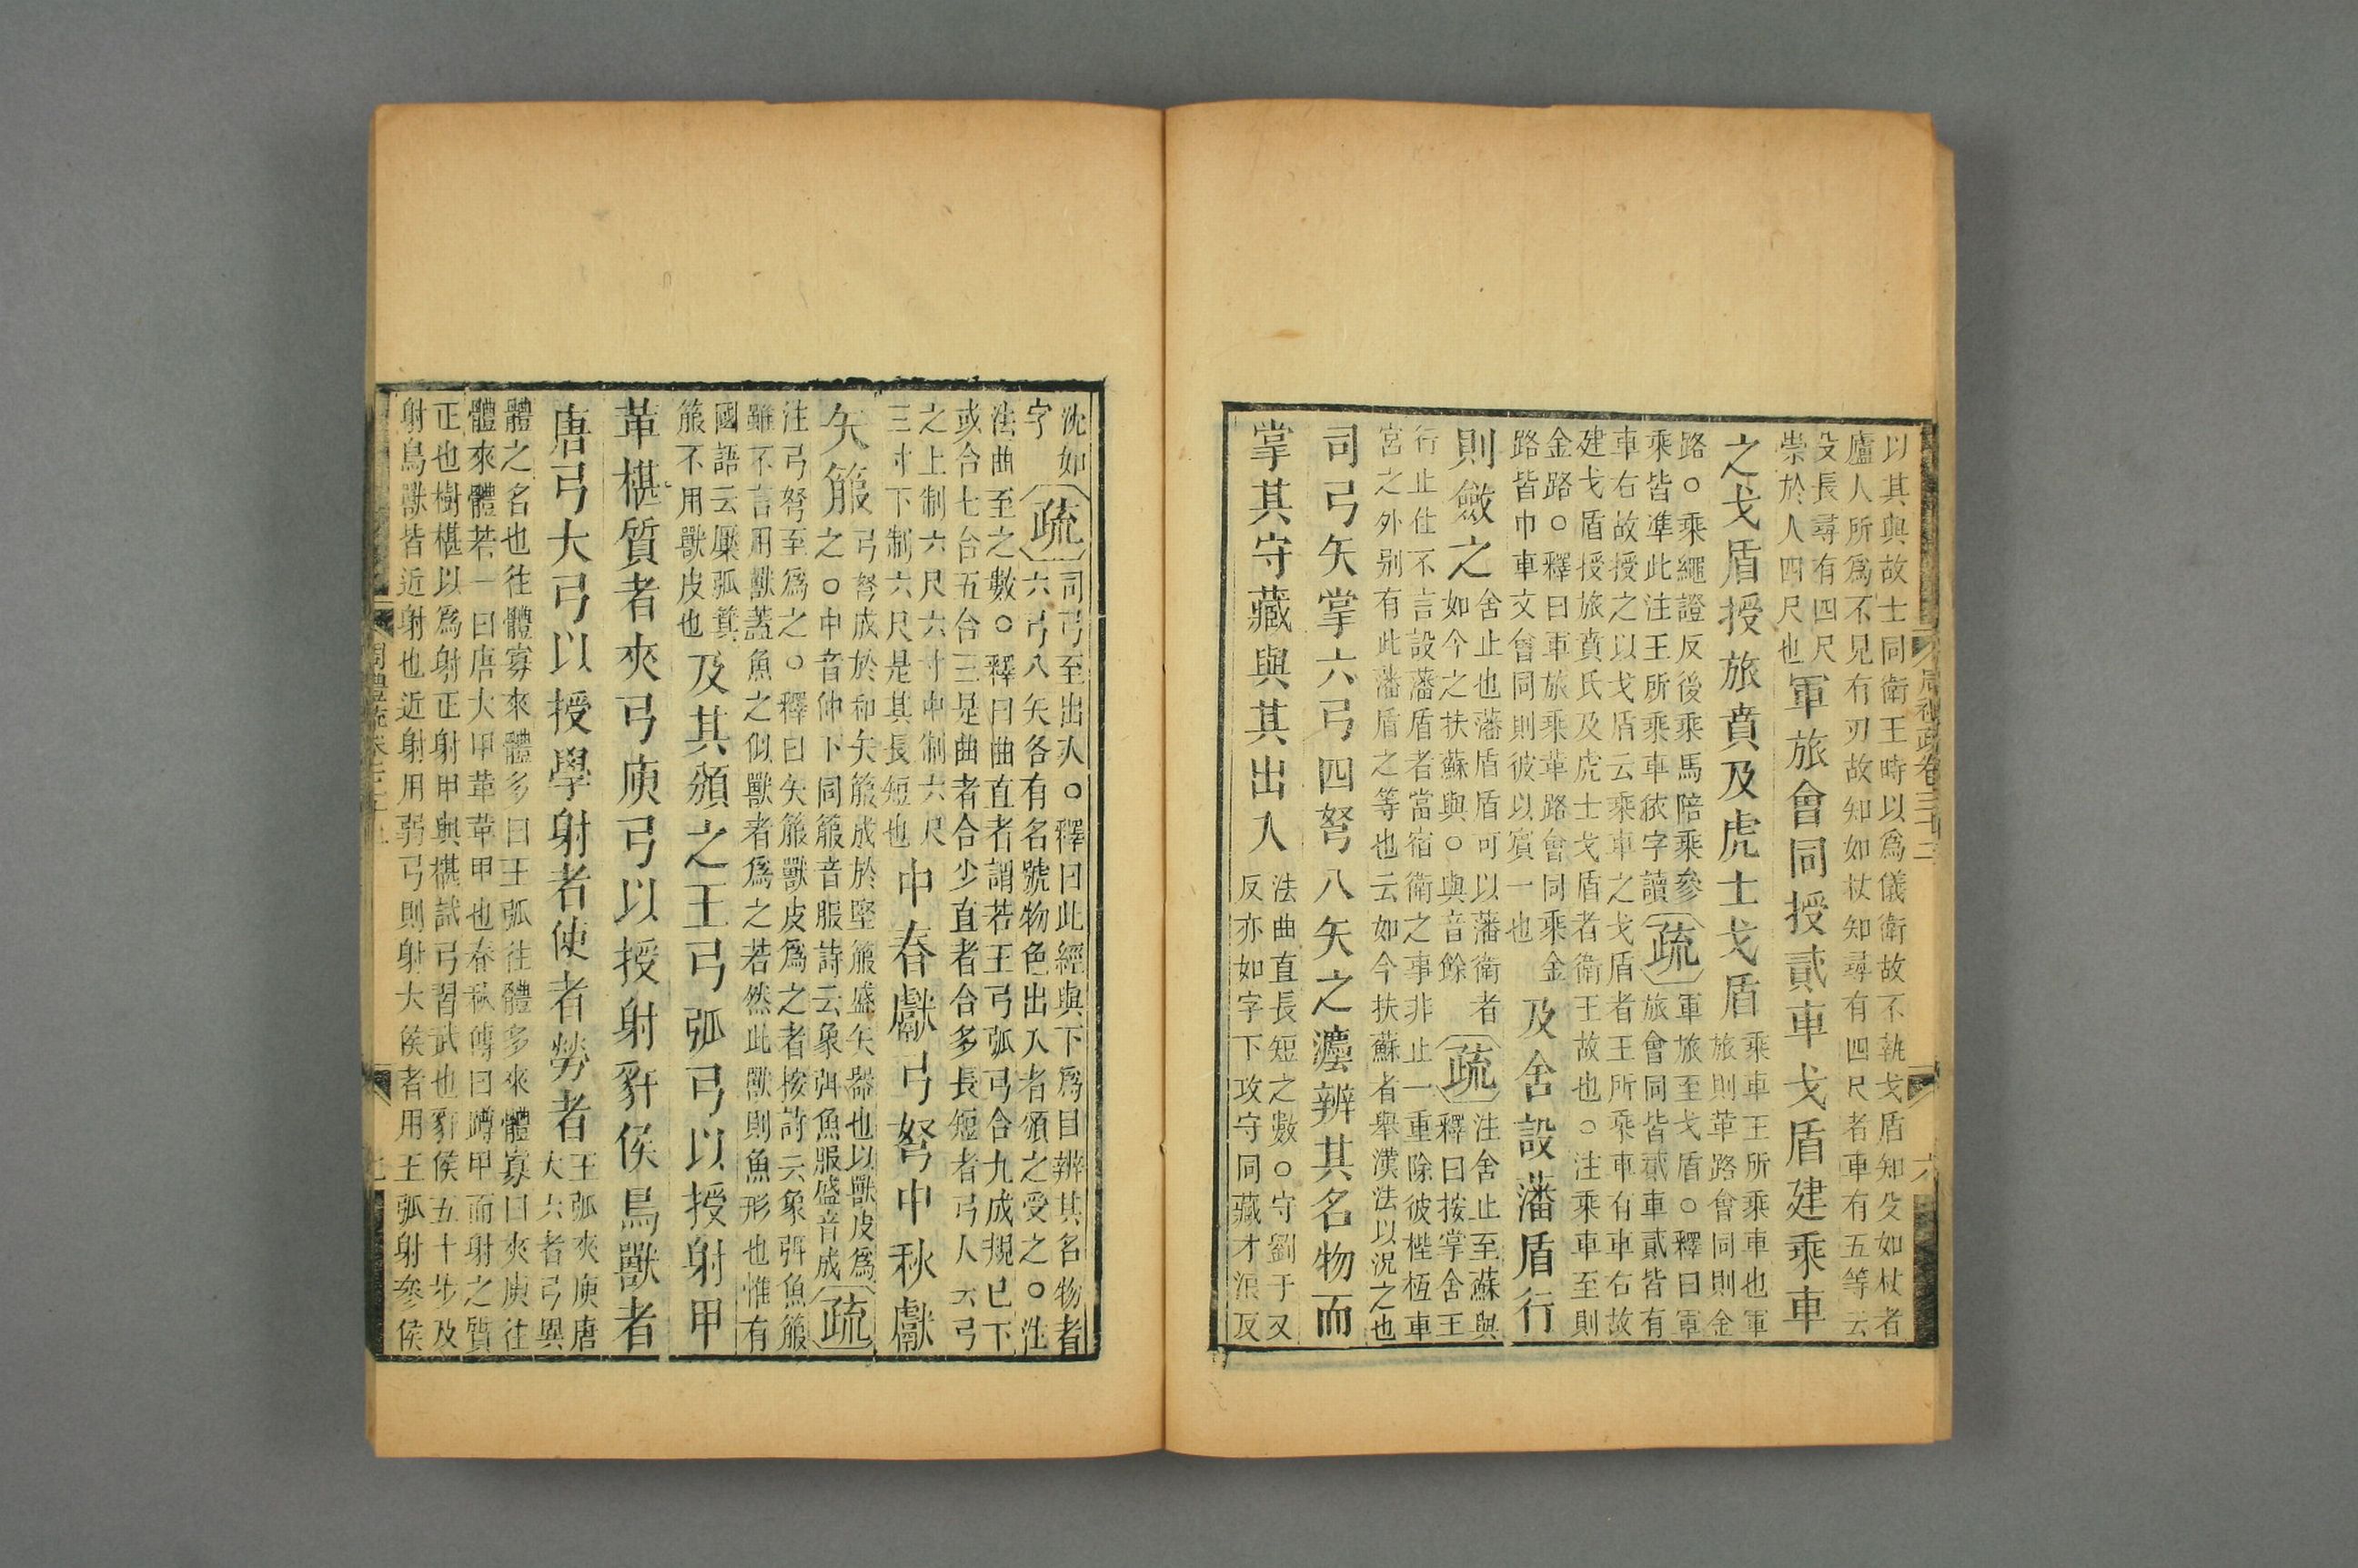 周禮疏卷三十二
六
以其與故士同衛王時以爲儀衛故不執戈盾知殳如杖者
廬人所爲不見有刃故知如杖知尋有四尺者車有五等云
殳長尋有四尺
崇於人四尺也
軍旅會同授貳車戈盾建乘車
之戈盾授旅賁及虎士戈盾
乘車王所乘車也軍
旅則革路會同則金
路○乘繩證反後乘馬陪乘參
乘皆準此注王所乘車依字讀
疏
軍旅至戈盾○釋曰軍
旅會同皆貳車貳皆有
車右故授之以戈盾云乘車之戈盾者王所乘車有車右故
建戈盾授旅賁氏及虎士戈盾者衛王故也○注乘車至則
金路○釋曰軍旅乘革路會同乘金
路皆巾車文會同則彼以賓一也
及舍設藩盾行
則斂之
舍止也藩盾盾可以藩衛者
如今之扶蘇與○與音餘
疏
注舍止至蘇與
釋曰按掌舍王
行止住不言設藩盾者當宿衛之事非止一重除彼梐枑車
宮之外别有此藩盾之等也云如今扶蘇者舉漢法以況之也
司弓矢掌六弓四弩八矢之灋辨其名物而
掌其守藏與其出入
法曲直長短之數○守劉于又
反亦如字下攻守同藏才浪反
沈如
字
疏
司弓至出入○釋曰此經與下爲目辨其名物者
六弓八矢各有名號物色出入者頒之受之○注
法曲至之數○釋曰曲直者謂若王弓弧弓合九成規已下
或合七合五合三是曲者合少直者合多長短者弓人云弓
之上制六尺六寸中制六尺
三寸下制六尺是其長短也
中春獻弓弩中秋獻
矢箙
弓弩成於和矢箙成於堅箙盛矢器也以獸皮爲
之○中音仲下同箙音服詩云象弭魚服盛音成
疏
注弓弩至爲之○釋曰矢箙獸皮爲之者按詩云象弭魚箙
雖不言用獸蓋魚之似獸者爲之若然此獸則魚形也惟有
國語云檿弧箕
箙不用獸皮也
及其頒之王弓弧弓以授射甲
革椹質者夾弓庾弓以授射豻侯鳥獸者
唐弓大弓以授學射者使者勞者
王弧夾庾唐
大六者弓異
體之名也往體寡來體多曰王弧往體多來體寡曰夾庾往
體來體若一曰唐大甲革革甲也春秋傳曰蹲甲而射之質
正也樹椹以爲射正射甲與椹試弓習武也豻侯五十步及
射鳥獸皆近射也近射用弱弓則射大侯者用王弧射參侯